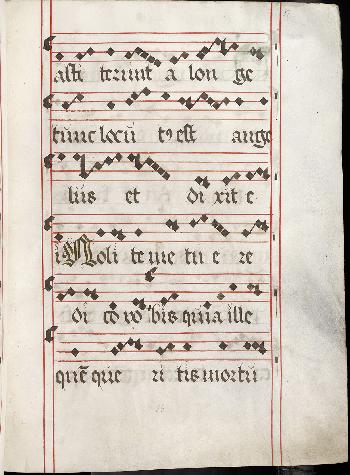 aste terunt a lon ge
tūnc locū t᷒ est ange
lus et di xit e
is Noli te me tu e re
di co vo bis quia ille
quē que ri tis mortū